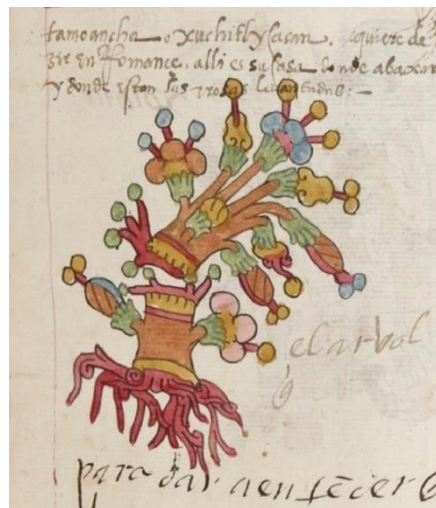 tamoancha o xuchitlycacan. quiere de
zir en Romance, alli es su casa donde abaxaron
y donde estan sus rosas levantadas:-
el arbol
para dar a entender